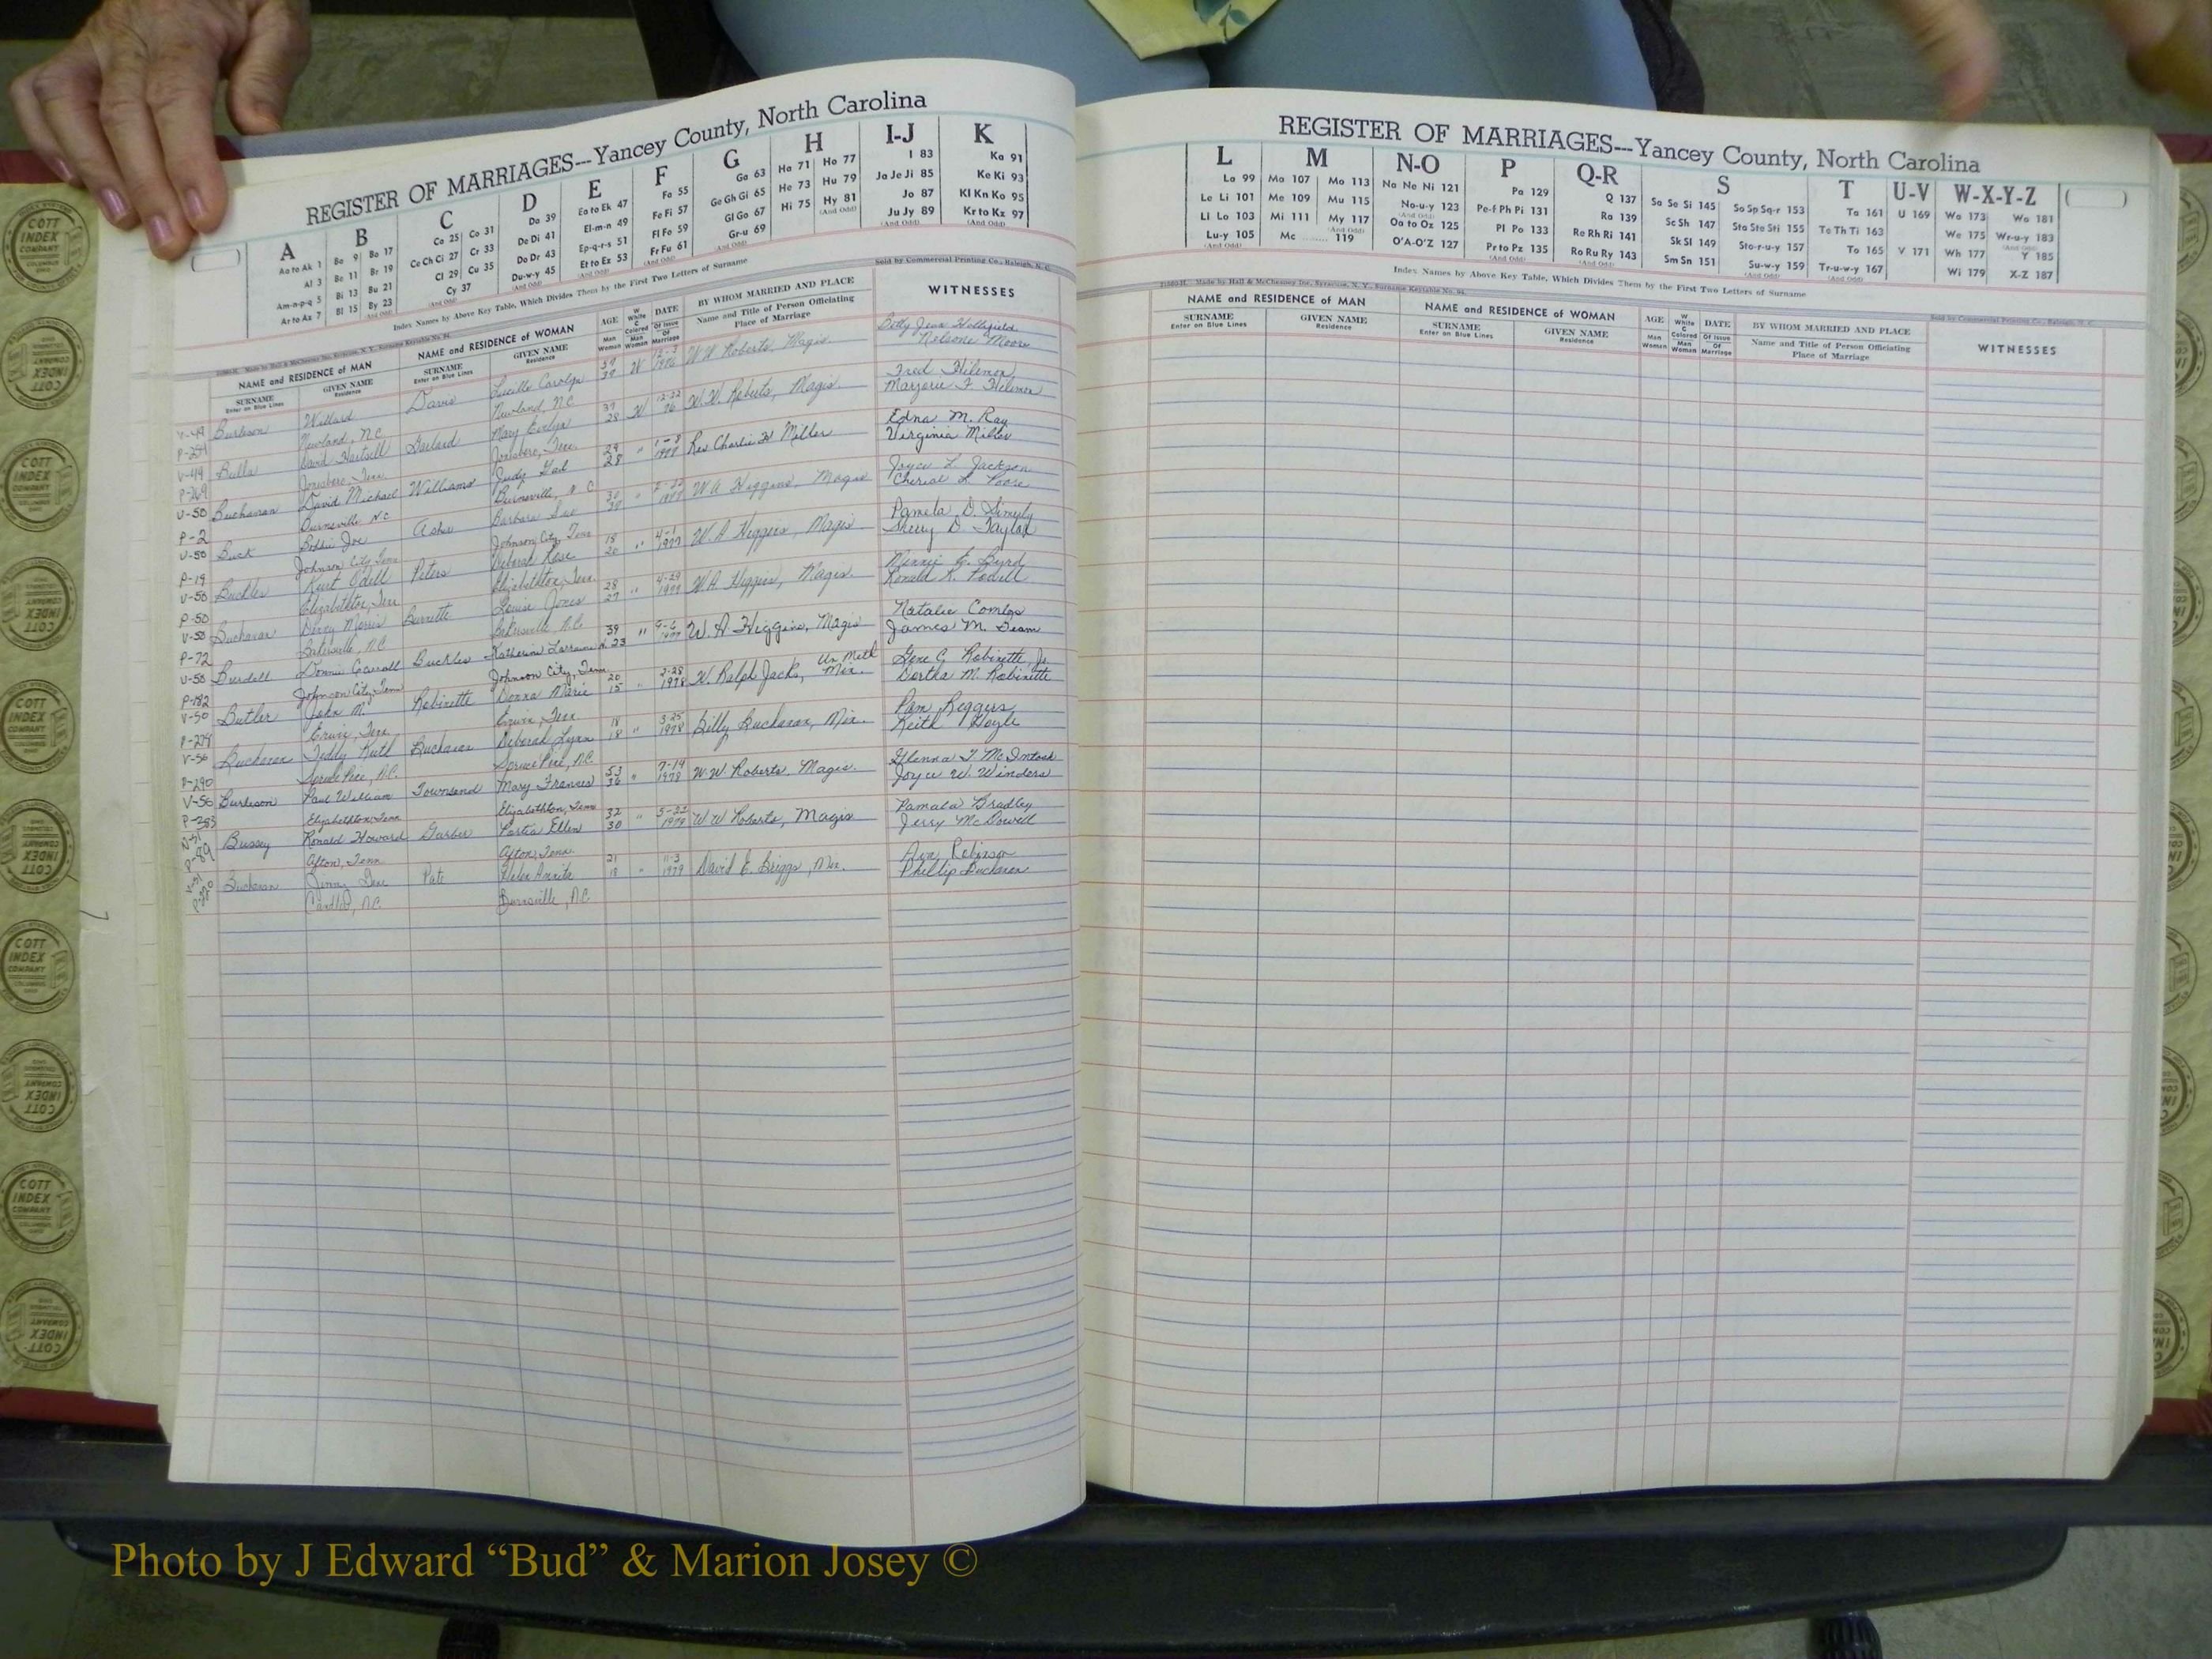 REGISTER OF MARRIAGES---Yancey County, North Carolina
A B C D E F G H I-J K
Aa to Ak 1 Ba 9 Bo 17 Ca 25 Co 31 Da 39 Ea to Ek 47 Fa 55 Ga 63 Ha 71 Ho 77 I 83 Ka 91
Al 3 Be 11 Br 19 Ce Ch Ci 27 Cr 33 De Di 41 El-m-n 49 Fe Fi 57 Ge Gh Gi 65 He 73 Hu 79 Ja Je Ji 85 Ke Ki 93
Am-n-p-q 5 Bi 13 Bu 21 Cl 29 Cu 35 Do Dr 43 Ep-q-r-s 51 Fl Fo 59 Gl Go 67 Hi 75 Hy 81 Jo 87 Kl Kn Ko 95
Ar to Az 7 Bl 15 By 23 Cy 37 Du-w-y 45 Et to Ez 53 Fr Fu 61 Gr-u 69 Ju Jy 89 Kr to Kz 97
Index Names by Above Key Table, Which Divides Them by the First Two Letters of Surname
Sold by Commercial Printing Co., Raleigh, N. C.
NAME and RESIDENCE of MAN NAME and RESIDENCE of WOMAN AGE W White C Colored DATE BY WHOM MARRIED AND PLACE WITNESSES
SURNAME Enter on Blue Lines GIVEN NAME Residence SURNAME Enter on Blue Lines GIVEN NAME Residence Man Woman Man Woman Of Issue Of Marriage Name and Title of Person Officiating Place of Marriage
V-49 Burleson Willard Davis Lucille Carolyn 39 W 1976 W.W. Roberts, Magis Betty Jean Hollifield
Newland, N.C. Newland, N.C. Nelson Moore
V-49 David Mary Evelyn 37 28 W 12-22 76 W.W. Roberts, Magis. Fred
P-269 Jonesboro, Tenn. Jonesboro, Tenn. Marjorie F.
V-50 Buchanan David Michael Williams Judy Gail 29 28 " 1-8 1977 Rev Charlie Miller Edna M. Ray
P-2 Burnsville NC Burnsville, N C Virginia Miller
V-50 Buck Bobbie Joe Barbara Sue 30 30 " 1977 W A Higgins, Magis Joyce L. Jackson
P-19 Johnson City Tenn Johnson City, Tenn
V-50 Buckles Kurt Odell Peters Deborah Rose 18 20 " 4-1 1977 W. A Higgins, Magis Pamela D.
P-50 Elizabethton, Tenn Elizabethton, Tenn. Sherry D. Taylor
V-50 Buchanan Morris Louise Jones 28 27 " 4-29 1977 W.A. Higgins, Magis Minnie G. Byrd
P-72 Bakersville, N.C. Bakersville, N.C. Ronald K.
V-50 Donnie Carroll Buckles Katherine Lorraine 39 23 " 1977 W. A Higgins, Magis Natalie Combs
P-182 Johnson City, Tenn Johnson City, Tenn James M.
V-50 Butler John M. Robinette Donna Marie 20 15 " 2-28 1978 W. Ralph Jacks, Un Meth Min. Gene C. Robinette, Jr
Erwin, Tenn Erwin, Tenn. Bertha M. Robinette
V-56 Buchanan Teddy Keith Buchanan Deborah Lynn 18 18 " 3-25 1978 Billy Buchanan, Min. Pam Reggers
P-290 Spruce Pine, N.C. Spruce Pine, N.C. Keith Hoyle
V-56 Burleson Paul William Townsend Mary Frances 53 36 " 7-14 1978 W.W. Roberts, Magis. Glenna T. McIntosh
Elizabethton, Tenn Elizabethton, Tenn Joyce W. Winders
P-89 Bussey Ronald Howard Garber Portia Ellen 32 30 " 1979 W W Roberts, Magis Pamala Bradley
Afton, Tenn. Afton, Tenn. Jerry McDowell
V-51 Buchanan Gene Pate Helen Annita 21 18 " 11-3 1979 David E. Briggs, Min. Robinson
Candler, N.C. Burnsville, N.C. Phillip Buchanan
REGISTER OF MARRIAGES---Yancey County, North Carolina
L M N-O P Q-R S T U-V W-X-Y-Z
La 99 Ma 107 Mo 113 Na Ne Ni 121 Pa 129 Q 137 Sa Se Si 145 So Sp Sq-r 153 Ta 161 U 169 Wa 173 Wo 181
Le Li 101 Me 109 Mu 115 No-u-y 123 Pe-f Ph Pi 131 Ra 139 Sc Sh 147 Sta Ste Sti 155 Te Th Ti 163 We 175 Wr-u-y 183
Ll Lo 103 Mi 111 My 117 Oa to Oz 125 Pl Po 133 Re Rh Ri 141 Sk Sl 149 Sto-r-u-y 157 To 165 V 171 Wh 177 Y 185
Lu-y 105 Mc ........ 119 O'A-O'Z 127 Pr to Pz 135 Ro Ru Ry 143 Sm Sn 151 Su-w-y 159 Tr-u-w-y 167 Wi 179 X-Z 187
Index Names by Above Key Table, Which Divides Them by the First Two Letters of Surname
Made by Hall & McChesney Inc., Syracuse, N. Y., Surname Keytable No. 94
Sold by Commercial Printing Co., Raleigh, N. C.
NAME and RESIDENCE of MAN NAME and RESIDENCE of WOMAN AGE W White C Colored DATE BY WHOM MARRIED AND PLACE WITNESSES
SURNAME Enter on Blue Lines GIVEN NAME Residence SURNAME Enter on Blue Lines GIVEN NAME Residence Man Woman Man Woman Of Issue Of Marriage Name and Title of Person Officiating Place of Marriage
COTT INDEX COMPANY COLUMBUS OHIO
Photo by J Edward “Bud” & Marion Josey ©